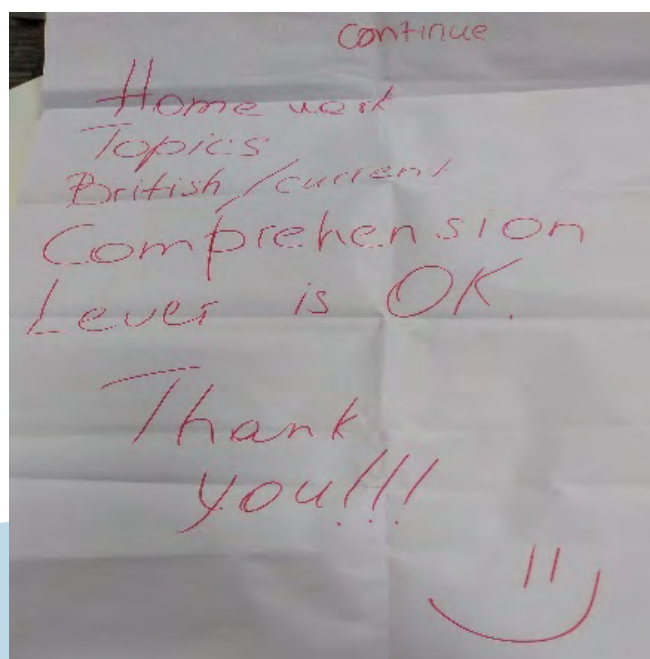 continue
Home work
Topics
British/current
Comprehension
Lever is OK.
Thank
you!!!